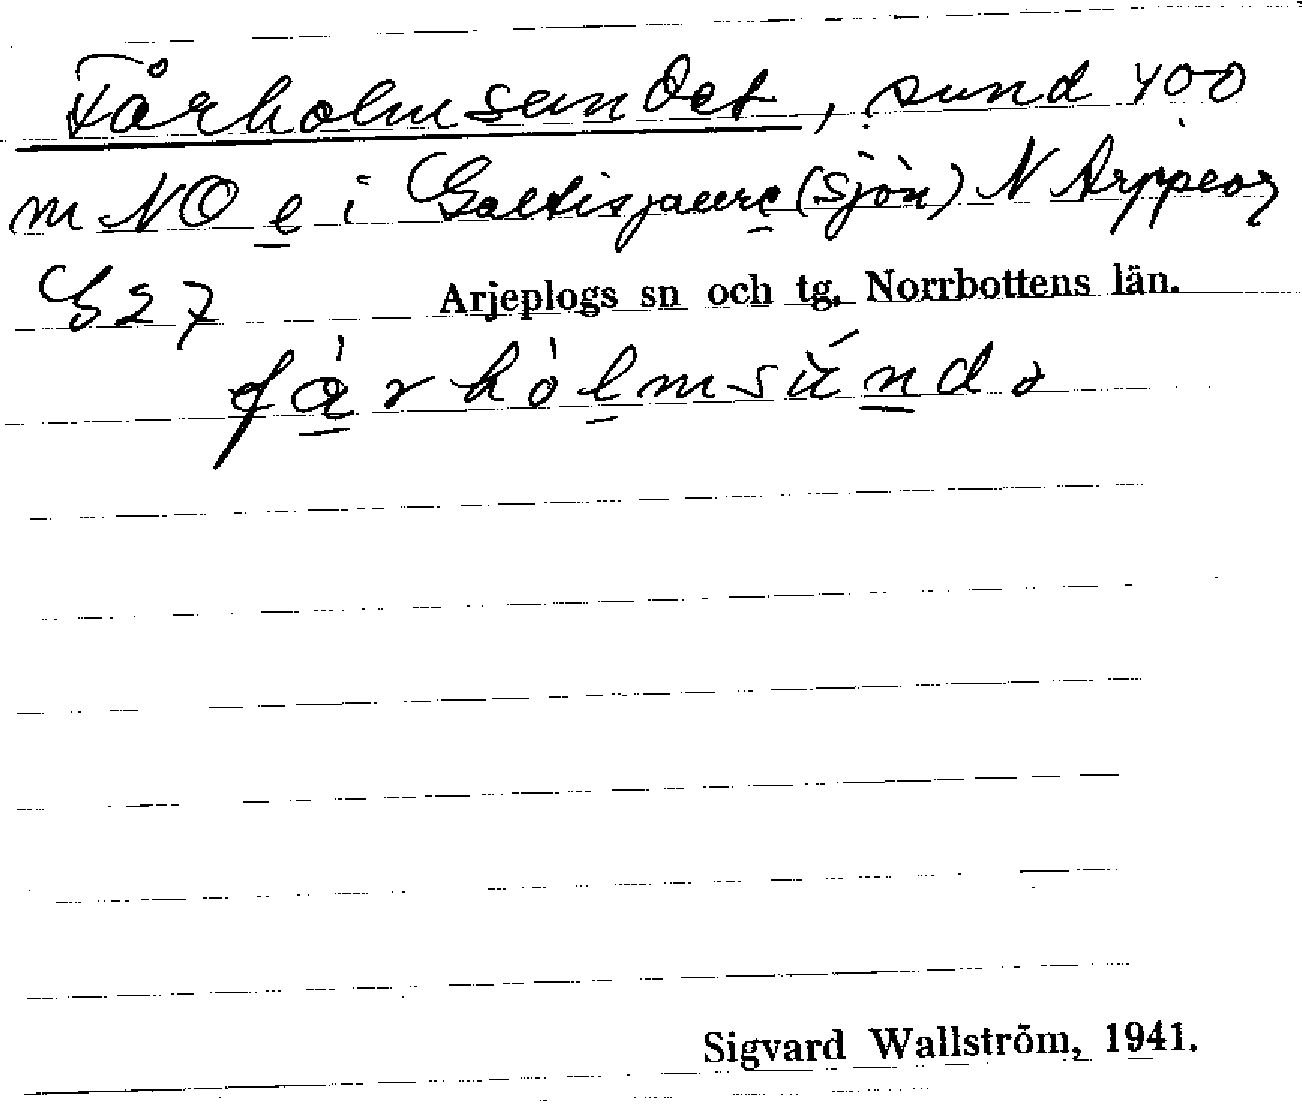 Fårholmsundet, sund 400
m NO e i Galtisjaure (sjön) N Arppeog
G27
Arjeplogs sn och tg. Norrbottens län.
fàrhòlmsúndə
Sigvard Wallström, 1941.